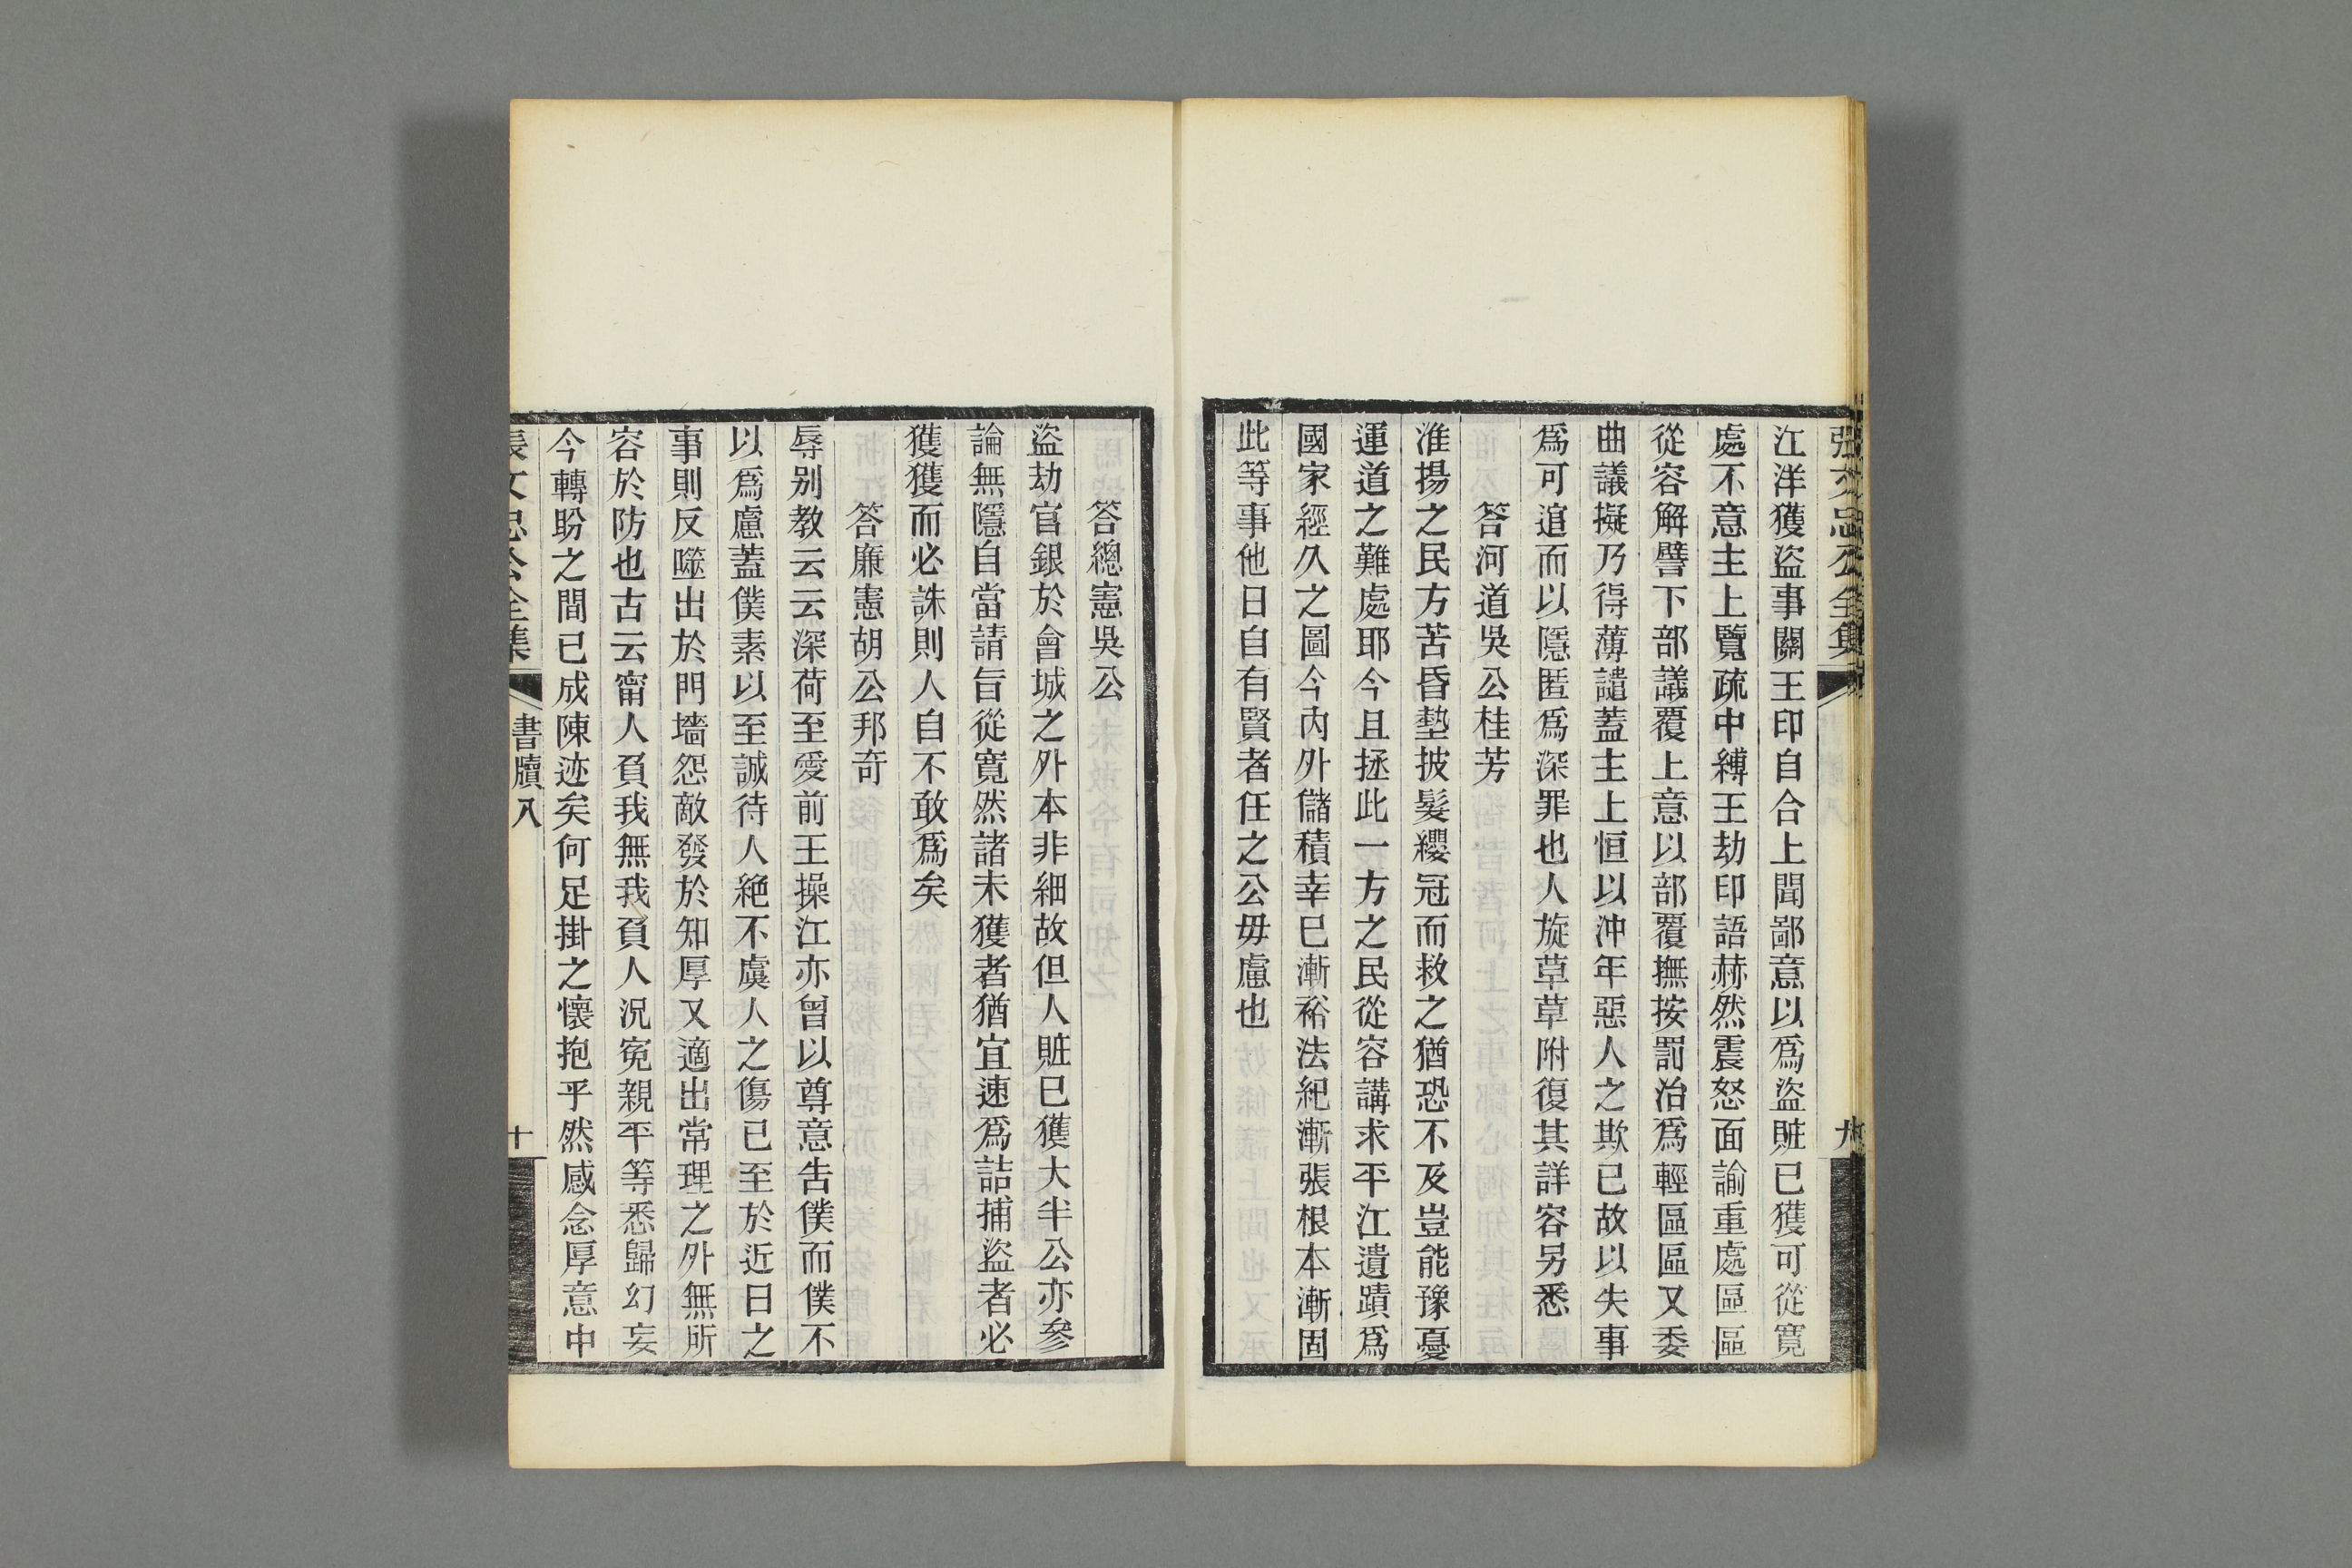 張文忠公全集
九
江洋獲盜事關王印自合上聞鄙意以爲盜賍已獲可從寬
處不意主上覽疏中縛王劫印語赫然震怒面諭重處區區
從容解譬下部議覆上意以部覆撫按罰治爲輕區區又委
曲議擬乃得薄譴蓋主上恒以沖年惡人之欺已故以失事
爲可逭而以隱匿爲深罪也人旋草草附復其詳容另悉
答河道吳公桂芳
淮揚之民方苦昏墊披髮纓冠而救之猶恐不及豈能豫憂
運道之難處耶今且拯此一方之民從容講求平江遺蹟爲
國家經久之圖今內外儲積幸巳漸裕法紀漸張根本漸固
此等事他日自有賢者任之公毋慮也
答總憲吳公
盜劫官銀於會城之外本非細故但人賍巳獲大半公亦參
論無隱自當請旨從寬然諸未獲者猶宜速爲詰捕盜者必
獲獲而必誅則人自不敢爲矣
答廉憲胡公邦奇
辱别教云云深荷至愛前王操江亦曾以尊意告僕而僕不
以爲慮蓋僕素以至誠待人絶不虞人之傷已至於近日之
事則反噬出於門墻怨敵發於知厚又適出常理之外無所
容於防也古云甯人負我無我負人況寃親平等悉歸幻妄
今轉盼之間已成陳迹矣何足掛之懷抱乎然感念厚意中
張文忠公全集
書牘八
十